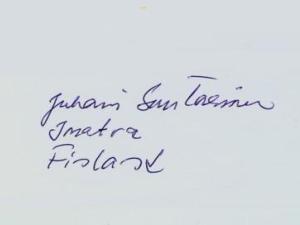 Juhani Suutarinen
Imatra
Finland